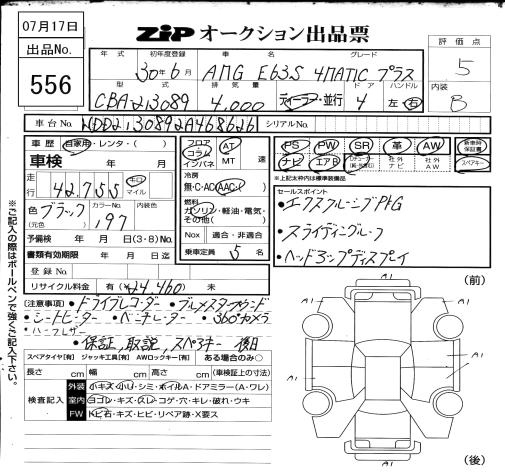 07月17日
出品No.
556
ZIP オークション出品票
年式 初年度登録 車名 グレード
30年6月 AMG E63S 4MATIC プラス
型式 排気量 ドア ハンドル
CBA213089 4,000 ディーラー・並行 4 左・右
評価点
5
内装
B
車台No. WDD2130892A468626 シリアルNo.
車歴 自家用・レンタ・( )
車検 年 月
走行 42,755 キロ マイル
色(元色) ブラック カラーNo. 197 内装色
予備検 年 月 日(3・8)No.
書類有効期限 年 月 日迄
登録No.
リサイクル料金 有(¥24,460) 未
フロア コラム インパネ AT MT 速
冷房
無・C・AC・AAC・( )
燃料
ガソリン・軽油・電気・その他( )
Nox 適合・非適合
乗車定員 5 名
PS PW SR 革 AW 新車時保証書
ナビ エアB 社外ナビ 社外AW スペアキー
※上記太枠内は標準装備品
セールスポイント
・エクスクルーシブPKG
・スライディングルーフ
・ヘッドアップディスプレイ
(注意事項)・ドライブレコーダー ・ブルメスターサウンド
・シートヒーター ・ベンチレーター ・360°カメラ
・パーフレザー
・保証、取説、スペアキー 後日
スペアタイヤ[有] ジャッキ工具[有] AWロックキー[有] ある場合のみ○
長さ cm 幅 cm 高さ cm (車検証上の寸法)
検査記入
外装 小キズ・小リ・シミ・ホイルA・ドアミラー(A・ワレ)
室内 ヨゴレ・キズ・スレ・コゲ・穴・キレ・破れ・ウキ
FW トビ石・キズ・ヒビ・リペア跡・X要ス
※ご記入の際はボールペンで強くご記入下さい。
(前)
A1
A1
A1
A1
A1
A1
(後)